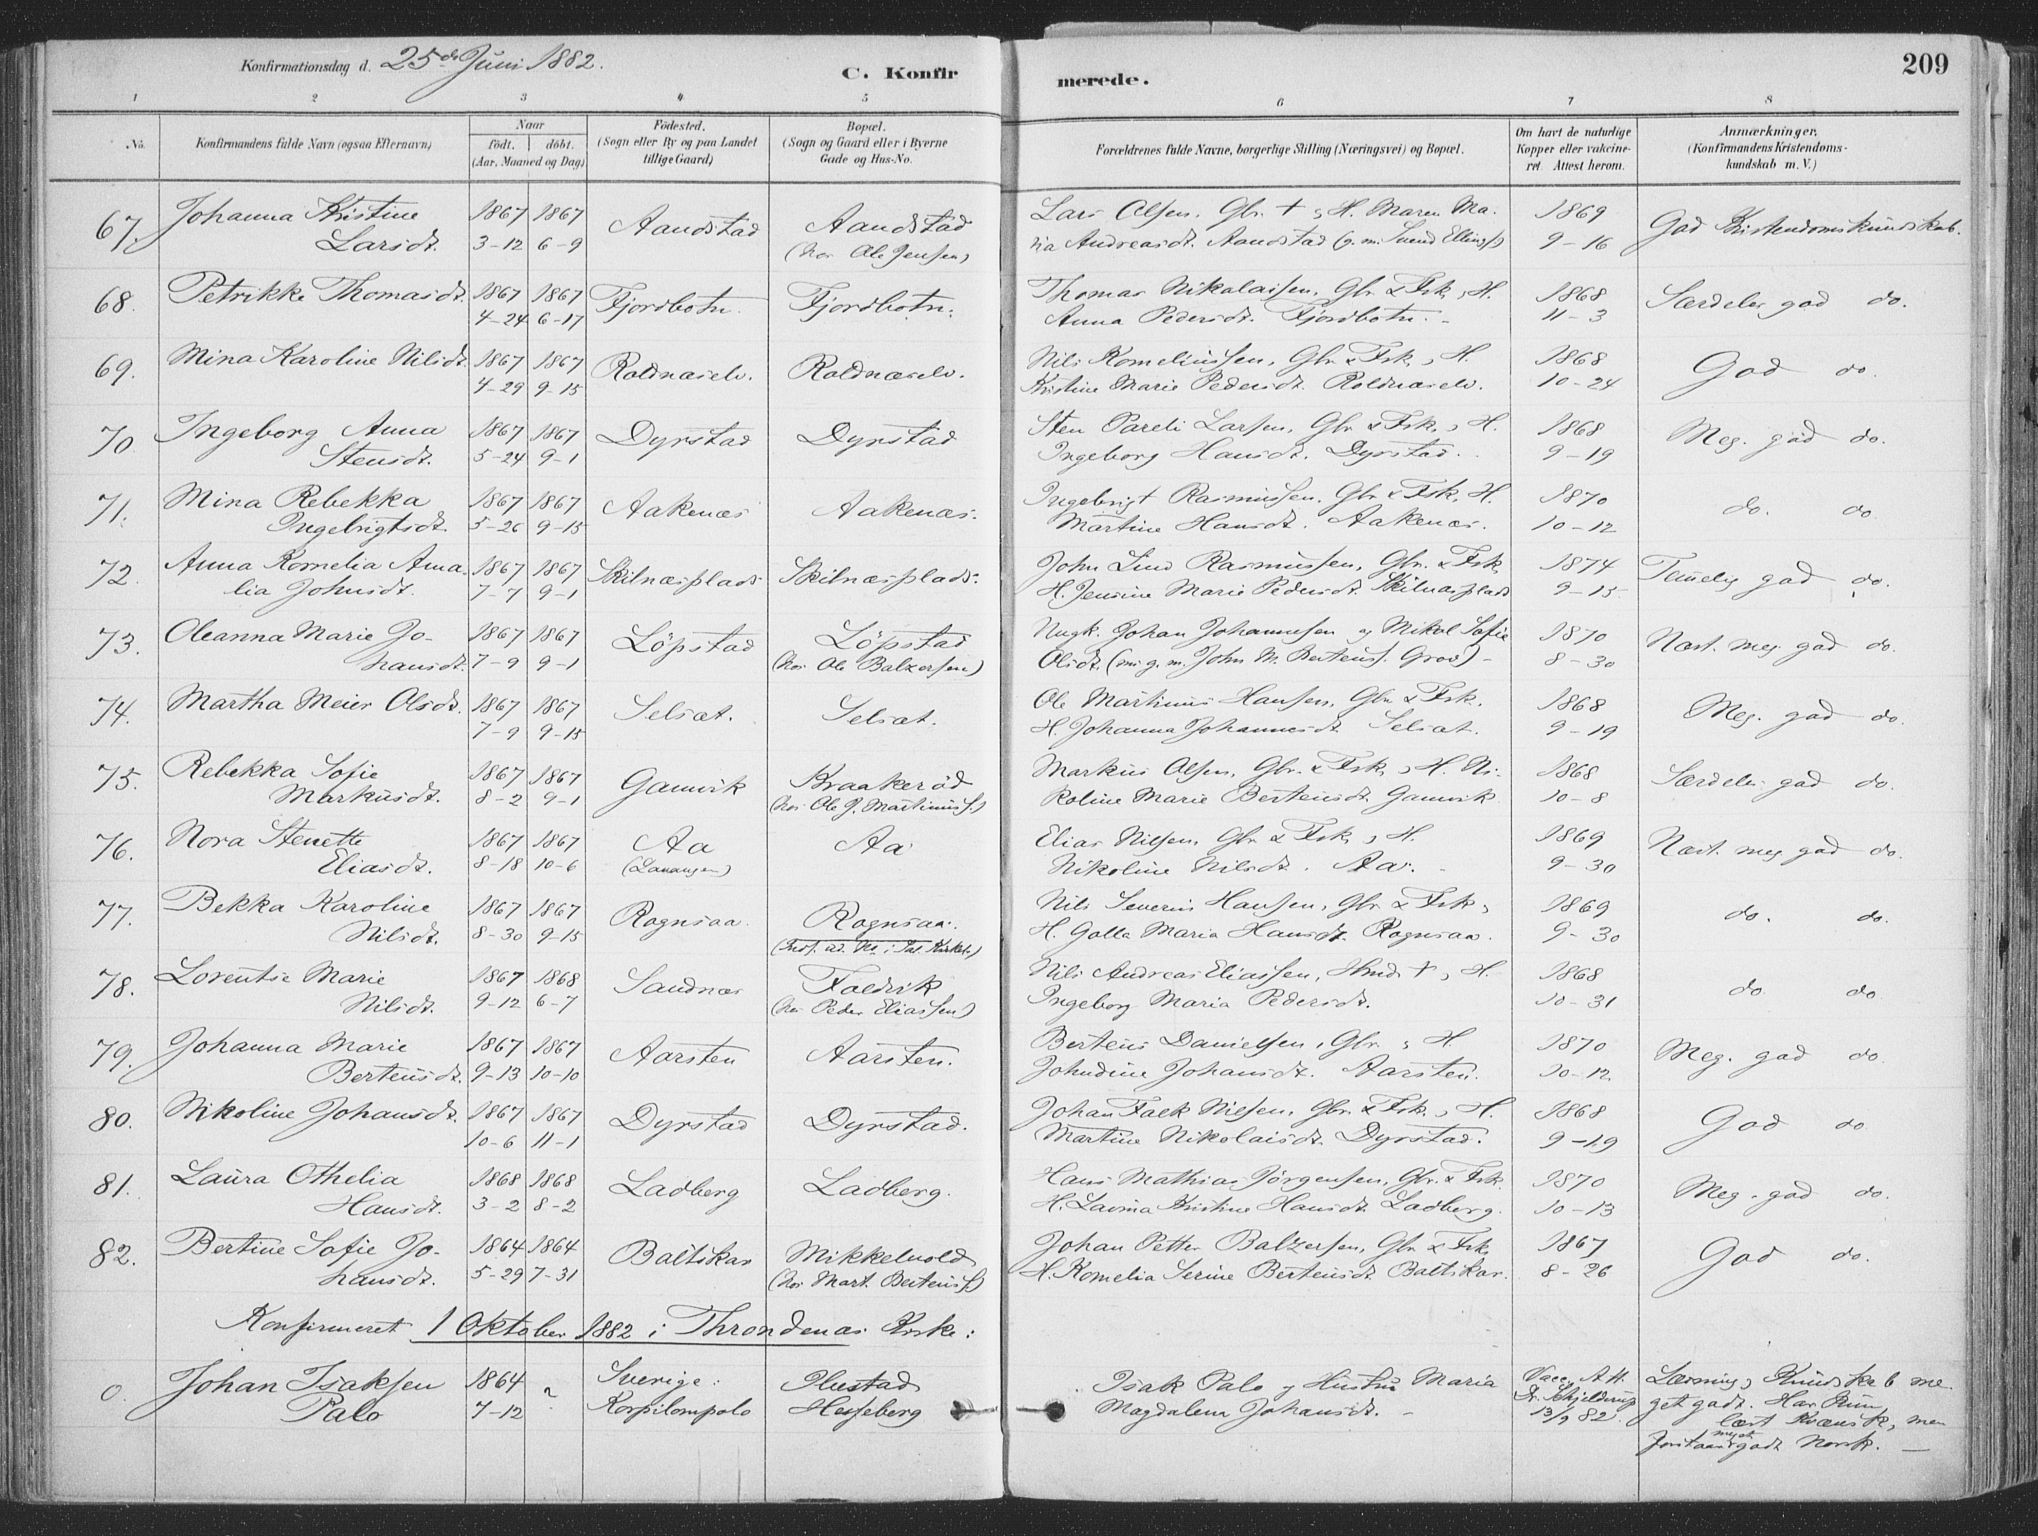 Konfirmationsdag d. 25de Juni 1882.
C. Konfir
merede.
209
1 2 3 4 5 6 7 8
No.
Konfirmandens fulde Navn (ogsaa Efternavn)
Naar
født. døbt.
(Aar, Maaned og Dag)
Fødested.
(Sogn eller By og paa Landet
tillige Gaard)
Bopæl.
(Sogn og Gaard eller i Byerne
Gade og Hus-No.
Forældrenes fulde Navne, borgerlige Stilling (Næringsvei) og Bopæl.
Om havt de naturlige
Kopper eller vakcine-
ret. Attest herom.
Anmærkninger.
(Konfirmandens Kristendoms-
kundskab m. V.)
67. Johanna Kristine 1867 1867 Aandstad Aandstad Lars Olsen, Gbr. +, H. Maren Ma- 1869 God Kristendomskundskab.
Larsdt. 3-12 6-9 (hos Ole Jensen) ria Andreasdt. Aandstad (g. m. Svend Ellings) 9-16
68. Petrikke Thomasdt. 1867 1867 Fjordbotn. Fjordbotn. Thomas Nikolaisen, Gbr. & Fsk., H. 1868 Særdeles god do.
4-24 6-17 Anna Pedersdt. Fjordbotn. 11-3
69. Mina Karoline Nilsdt. 1867 1867 Roldnæselv. Roldnæselv. Nils Korneliussen, Gbr. & Fsk., H. 1868 God do.
4-29 9-15 Kristine Marie Pedersdt. Roldnæselv. 10-24
70. Ingeborg Anna 1867 1867 Dyrstad Dyrstad Sten Pareli Larsen, Gbr. & Fsk., H. 1868 Meg. god do.
Stensdt. 5-24 9-1 Ingeborg Hansdt. Dyrstad. 9-19
71. Mina Rebekka 1867 1867 Aakenæs Aakenæs. Ingebrigt Rasmussen, Gbr. & Fsk., H. 1870 do. do
Ingebrigtsdt. 5-26 9-15 Martine Hansdt. Aakenæs. 10-12
72. Anna Kornelia Ama- 1867 1867 Skilnæsplads Skilnæsplads. John Lind Rasmussen, Gbr. & Fsk, 1874 Temelig god do.
lia Johnsdt. 7-7 9-1 H. Jensine Marie Pedersdt. Skilnæsplads 9-15
73. Oleanna Marie Jo- 1867 1867 Löpstad Löpstad Ungk. Johan Johannesen og Nikol. Sofie 1870 Næst. meg. god do.
hansdt. 7-9 9-1 (hos Ole Balzersen) Olsdt. (nu g. m. John M. Bertens. Grov) - 8-30
74. Martha Meier Olsdt. 1867 1867 Selsæt. Selsæt. Ole Martinus Hansen, Gbr. & Fsk. 1868 Meg. god do.
7-9 9-15 H. Johanna Johannesdt Selsæt. 9-19
75. Rebekka Sofie 1867 1867 Gamvik Kraakeröd Markus Olsen, Gbr. & Fsk., H. Ni- 1868 Særdeles god do.
Markusdt. 8-2 9-1 (hos Ole J. Martinuss.) koline Marie Bertensdt. Gamvik 10-8
76. Nora Stenette 1867 1867 Aa Aa Elias Nilsen, Gbr. & Fsk., H. 1869 Næst. meg. god do.
Eliasdt. 8-18 10-6 (Lavangen) Nikoline Nilsdt. Aa. 9-30
77. Bekka Karoline 1867 1867 Rognsaa. Rognsaa. Nils Severin Hansen, Gbr. & Fsk., 1869 do. do.
Nilsdt. 8-30 9-15 H. Golla Maria Hansdt. Rognsaa. 9-30
78. Lorentse Marie 1867 1868 Sandnæs Faldvik Nils Andreas Eliassen, Hmd. +, H. 1868 do do
Nilsdt. 9-12 6-7 (hos Peder Eliassen) Ingeborg Maria Pedersdt. 10-31
79. Johanna Marie 1867 1867 Aarsten Aarsten. Berteus Danielsen, Gbr., H. 1870 Meg. god do.
Berteusdt. 9-13 10-10 Johndine Johansdt. Aarsten. 10-12
80. Nikoline Johansdt. 1867 1867 Dyrstad Dyrstad. Johan Falk Nilsen, Gbr. & Fsk., H. 1868 God do
10-6 11-1 Martine Nikolaisdt. Dyrstad. 9-19
81. Laura Othelia 1868 1868 Ladberg Ladberg. Hans Mathias Jörgensen, Gbr. & Fsk. 1870 Meg. god do.
Hansdt. 3-2 8-2 H. Lavina Kristine Hansdt. Ladberg. 10-13
82. Bertine Sofie Jo- 1864 1864 Baltskar Mikkelvold Johan Petter Balzersen, Gbr. & Fsk, 1867 God do.
hansdt. 5-29 7-31 (hos Mart. Bertenss.) H. Kornelia Serine Bertensdt. Baltskar. 8-26
Konfirmeret 1 Oktober 1882 i Throndenæs Kirke:
0. Johan Isaksen 1864 ~ Sverige: Ilvestad Isak Palo og Hustru Maria Vacc. Att. Læsning, Kundskab me-
Palo 7-12 Korpilompolo Hesseberg Magdalena Johansdt. - Dr. Schjelderup get godt. Har kun
13/9 82. lært Kvænsk, men
forstaar meget godt Norsk. -